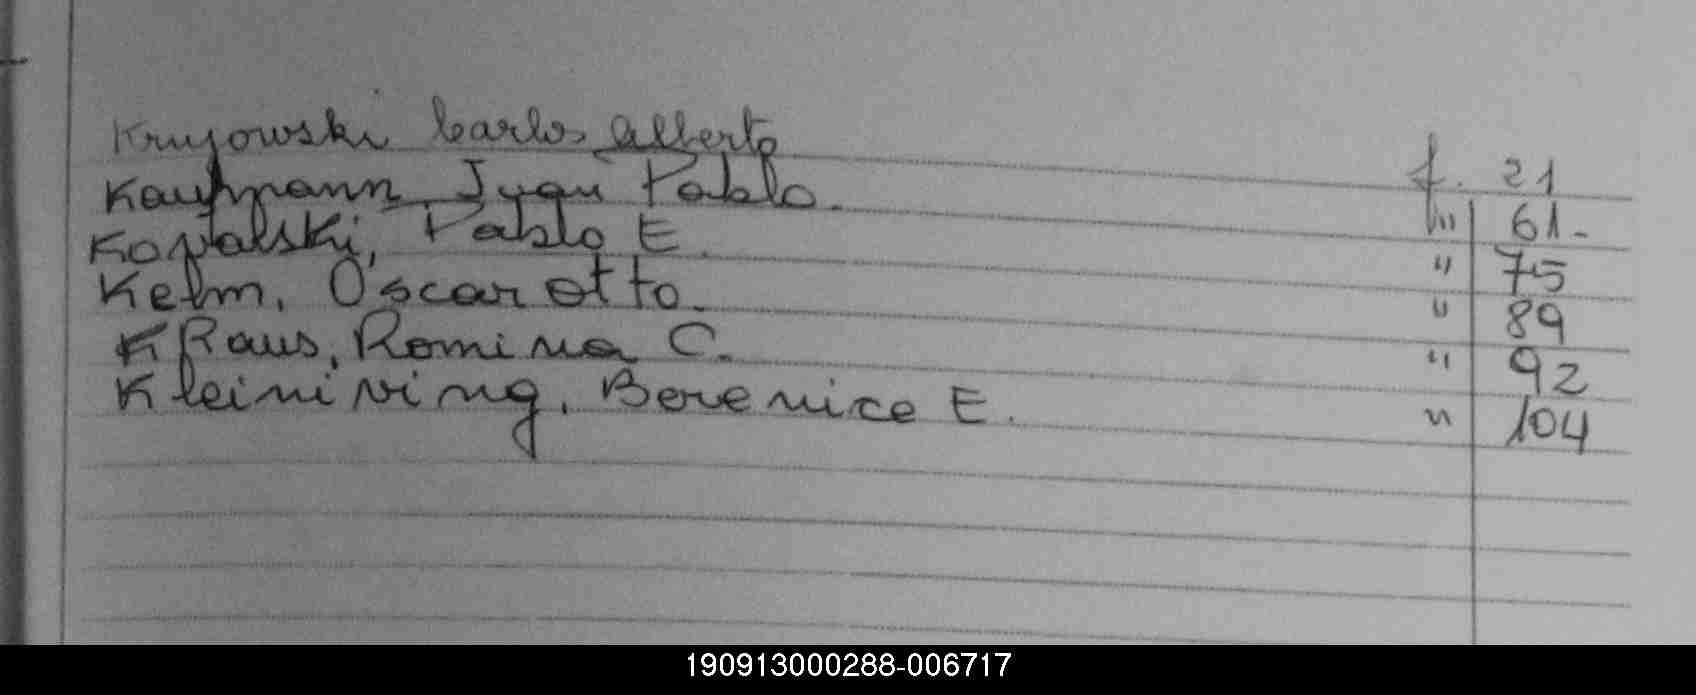 Kruyowski Carlos Alberto f. 21
Kaufmann Juan Pablo. " 61.-
Kovalski, Pablo E. " 75
Kelm, Oscar Otto. " 89
Kraus, Romina C. " 92
Kleiniving, Berenice E. " 104
190913000288-006717